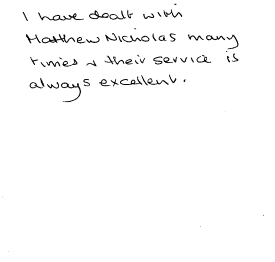 I have dealt with
Matthew Nicholas many
times & their service is
always excellent.